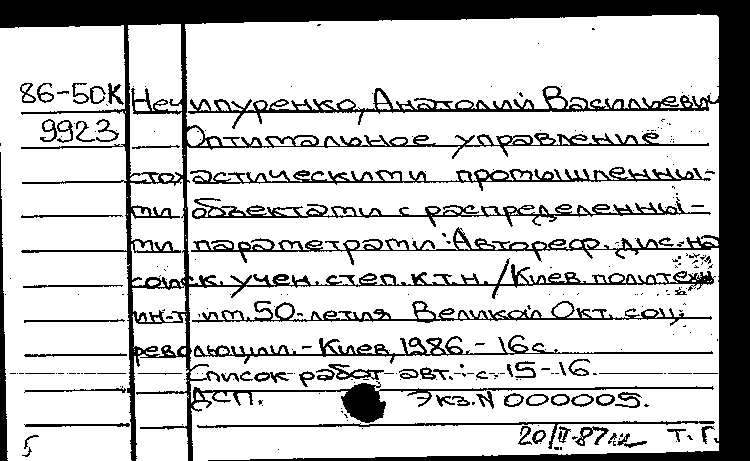 86-50К Нечипуренко, Анатолий Васильевич
9923 Оптимальное управление
стохастическими промышленны-
ми объектами с распределенны-
ми параметрами: Автореф. дис. на
соиск. учен. степ. к.т.н. / Киев. политехн.
ин-т им. 50-летия Великой Окт. соц.
революции. - Киев, 1986. - 16 с.
Список работ авт.: с. 15-16.
ДСП. Экз. N 000005.
5 20/II-87 Т. Г.